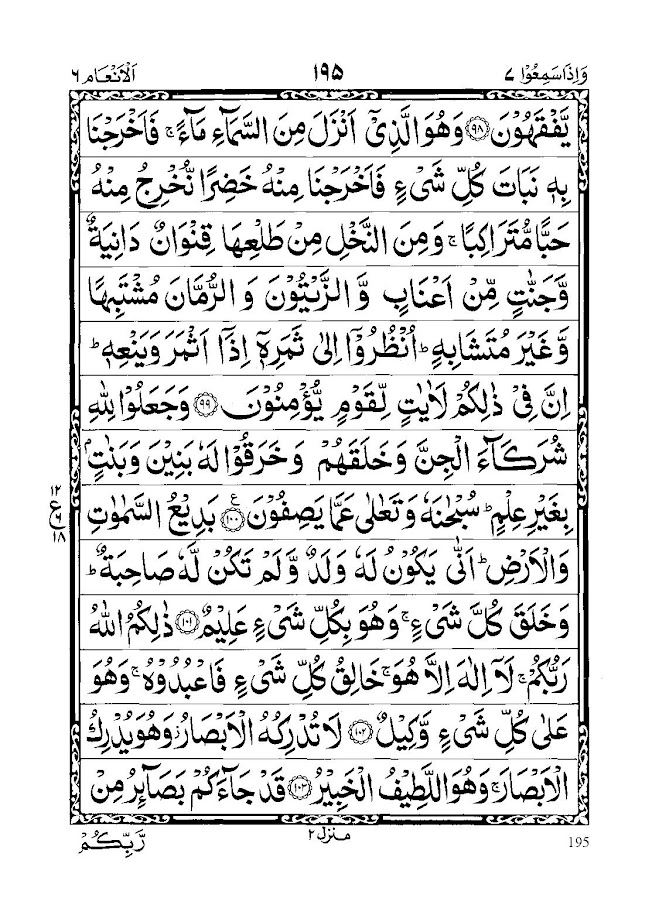 وَاِذَاسَمِعُوْا ٧ ١٩٥ اَلْاَنْعَام ٦
يَّفْقَهُوْنَ ﴿٩٨﴾ وَهُوَ الَّذِىْۤ اَنْزَلَ مِنَ السَّمَآءِ مَآءً ۚ فَاَخْرَجْنَا
بِهٖ نَبَاتَ كُلِّ شَىْءٍ فَاَخْرَجْنَا مِنْهُ خَضِرًا نُّخْرِجُ مِنْهُ
حَبًّا مُّتَرَاكِبًا ۚ وَمِنَ النَّخْلِ مِنْ طَلْعِهَا قِنْوَانٌ دَانِيَةٌ
وَّجَنّٰتٍ مِّنْ اَعْنَابٍ وَّالزَّيْتُوْنَ وَالرُّمَّانَ مُشْتَبِهًا
وَّغَيْرَ مُتَشَابِهٍ ؕ اُنْظُرُوْۤا اِلٰى ثَمَرِهٖۤ اِذَاۤ اَثْمَرَ وَيَنْعِهٖ ؕ
اِنَّ فِىْ ذٰلِكُمْ لَاٰيٰتٍ لِّقَوْمٍ يُّؤْمِنُوْنَ ﴿٩٩﴾ وَجَعَلُوْا لِلّٰهِ
شُرَكَآءَ الْجِنَّ وَخَلَقَهُمْ وَخَرَقُوْا لَهٗ بَنِيْنَ وَبَنٰتٍۢ
بِغَيْرِ عِلْمٍ ؕ سُبْحٰنَهٗ وَتَعٰلٰى عَمَّا يَصِفُوْنَ ﴿١٠٠﴾ع بَدِيْعُ السَّمٰوٰتِ
١٢
ع
٦
١٨
وَالْاَرْضِ ؕ اَنّٰى يَكُوْنُ لَهٗ وَلَدٌ وَّلَمْ تَكُنْ لَّهٗ صَاحِبَةٌ ؕ
وَخَلَقَ كُلَّ شَىْءٍ ۚ وَهُوَ بِكُلِّ شَىْءٍ عَلِيْمٌ ﴿١٠١﴾ ذٰلِكُمُ اللّٰهُ
رَبُّكُمْ ۚ لَاۤ اِلٰهَ اِلَّا هُوَ ۚ خَالِقُ كُلِّ شَىْءٍ فَاعْبُدُوْهُ ۚ وَهُوَ
عَلٰى كُلِّ شَىْءٍ وَّكِيْلٌ ﴿١٠٢﴾ لَا تُدْرِكُهُ الْاَبْصَارُ ز وَهُوَ يُدْرِكُ
الْاَبْصَارَ ۚ وَهُوَ اللَّطِيْفُ الْخَبِيْرُ ﴿١٠٣﴾ قَدْ جَآءَكُمْ بَصَآئِرُ مِنْ
رَّبِّكُمْ منزل ٢ 195